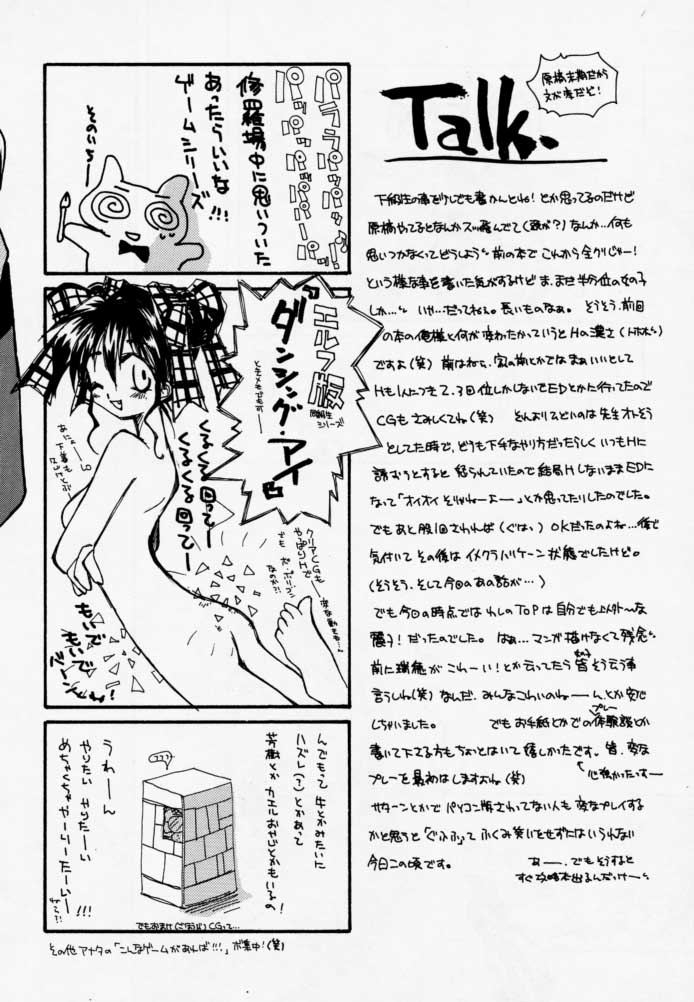 Talk.
原稿末期だから
文が変だど!
下級生の事を少しでも書かんとね!とか思ってるのだけど
原稿やってるとなんかスッ飛んでて(頭が?)なんか…何も
思いつかなくってどうしよう 前の本でこれから全クリじゃー!
という様な事を書いた気がするけど ま、まだ半分位の女の子
しか… いや…だってねぇ。長いものなぁ。 そうそう、前回
の本の俺様と何が変わったかっていうとHの濃さ(ホホホ)
ですよ(笑) 前はねぇ、
HもIにつき2、3回位しかしないでEDとかに行ってたので
CGもさみしくてね(笑) そんよりひどいのは先生オトそう
としてた時で、どうも下手なやり方だったらしくいつもHに
誘おうとすると 怒られていたので結局HしないままEDに
なって「オイオイ そりゃねーよー」とか思ってたりしたのでした。
でもあと股1回さわれば(ぐはっ) OKだったのよね…後で
気付いて その後はイメクラハリケーン状態でしたけど。
(そうそう、そして今回のあの話が…)
でも今回の時点では わしのTOPは自分でも以外〜な
麗子!だったのでした。 はぁ…マンガ描けなくて残念
前に瑞穂がこわーい!とか云ってたら皆そう云う事
言うしね(笑) なんだ、みんなこわいのねーん、とか安心
しちゃいました。 でもお手紙とかでのプレー体験談とか
書いて下さる方もちょっとはいて嬉しかったです。皆、変な
プレーを最初はしますよね(笑)
心強かったっすー
サターンとかでパソコン版さわってない人も変なプレイする
かと思うと「ぐふふ」ってふくみ笑いをせずにはいられない
今日この頃です。
あー、でもそうすると
すぐ攻略本出るんだっけー
パララパッパッ
パッパッパパパーパ!!
修羅場中に思いついた
あったらいいな
ゲームシリーズ!!!
そのいちー
エルフ版
同級生
シリーズ!!
『ダンシング・アイ』
とキメキでも可ー
くるくる回ってー
くるくる回ってー
下着も
クリアCGも
やっぱりHで
でも
ポリゴン
なのか!?
もいで
もいで
バーンッてね!
んでもって牛とかみたいに
ハズレ(?)とかあって
芳樹とか カエルおやじとかもいるの!
うわーん
やりたい やりたーい
めちゃくちゃ やーりーたーいー!!!
ココフ?
でもおまけ(ごほうび)CGって…
その他アナタの「こんなゲームがあれば!!!」ボ集中!(笑)